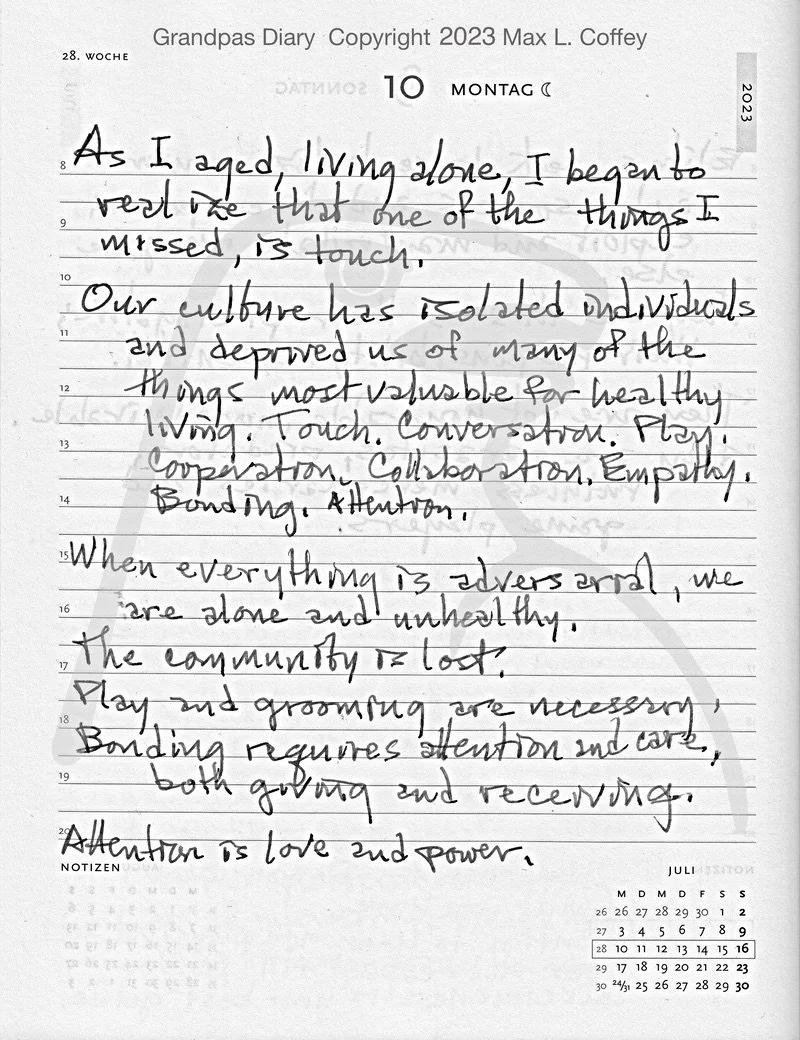 Grandpas Diary Copyright 2023 Max L. Coffey
28. WOCHE
10 MONTAG
2023
8 As I aged, living alone, I began to
realize that one of the things I
9 missed, is touch.
10
Our culture has isolated individuals
11 and deprived us of many of the
12 things most valuable for healthy
living. Touch. Conversation. Play.
13 Cooperation. Collaboration. Empathy.
14 Bonding. Attention.
15 When everything is adversarial, we
16 are alone and unhealthy.
17 The community is lost.
Play and grooming are necessary,
18 Bonding requires attention and care,
19 both giving and receiving.
20 Attention is love and power.
NOTIZEN
JULI
M D M D F S S
26 26 27 28 29 30 1 2
27 3 4 5 6 7 8 9
28 10 11 12 13 14 15 16
29 17 18 19 20 21 22 23
30 24/31 25 26 27 28 29 30